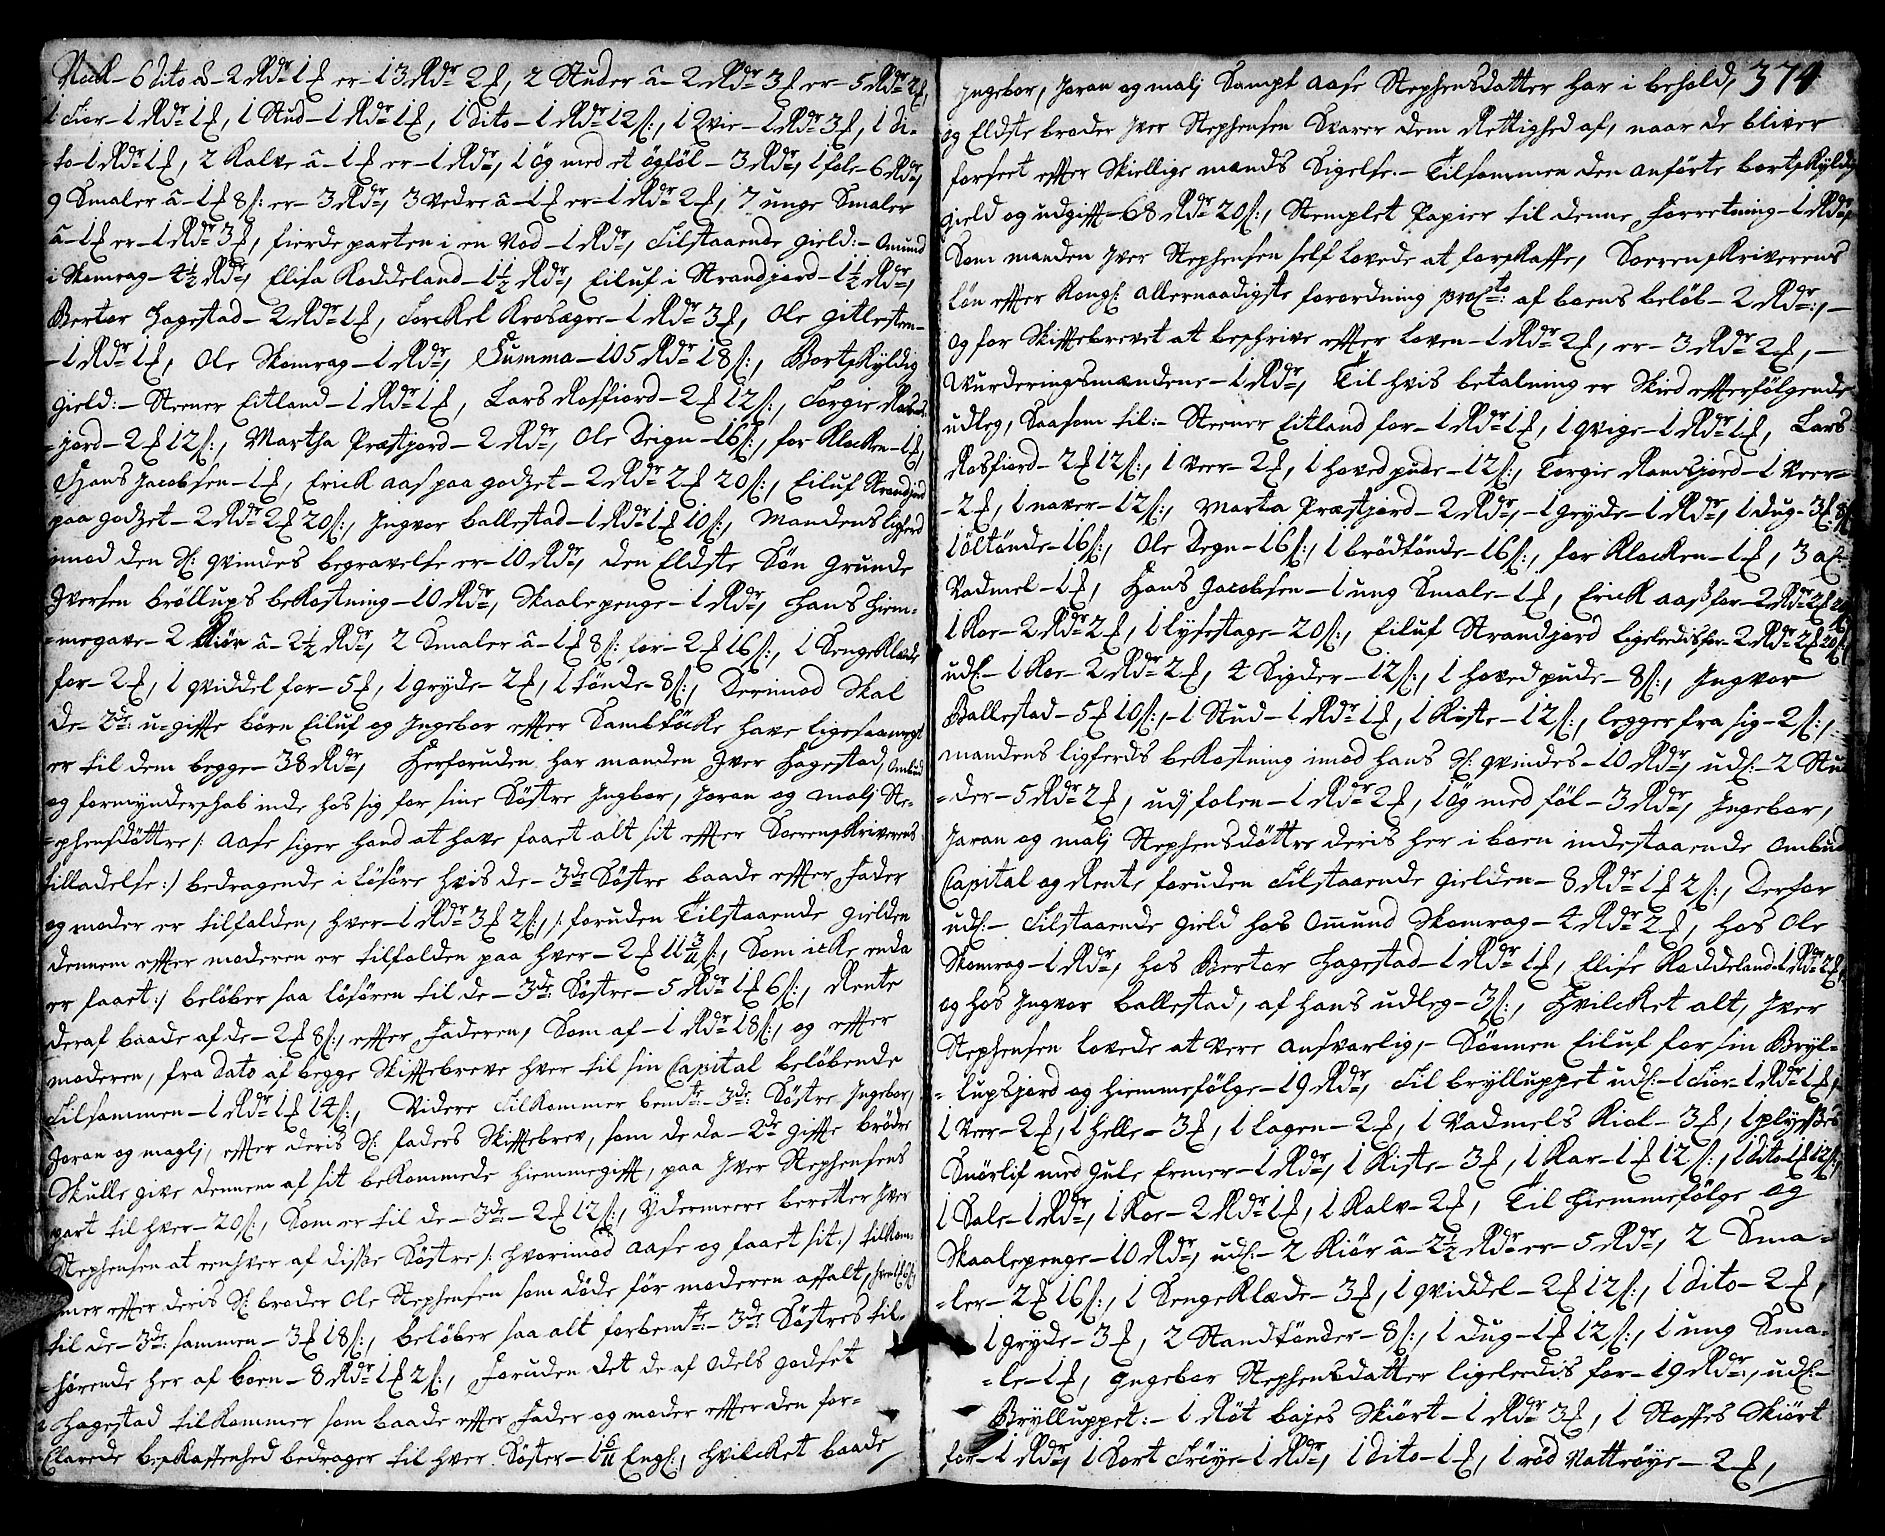 6 dito â 2 Rdr 1 £ er 13 Rdr 2 £, 2 Studer â 2 Rdr 3 £ er 5 Rdr 2 £,
1 Fior 1 Rdr 1 £, 1 Stud 1 Rdr 1 £, 1 dito 1 Rdr 12 s:, 1 Qvie 1 Rdr 3 £, 1 di-
to 1 Rdr 1 £, 2 Kalve â 1 £ er 1 Rdr, 1 Ög med et ögföl 3 Rdr, 1 fole 6 Rdr,
9 Smaler â 1 £ 8 s: er 3 Rdr, 3 Vedre â 1 £ er 1 Rdr 2 £, 7 unge Smaler
â 1 £ er 1 Rdr 3 £, fierde parten i en Nod 1 Rdr, Tilstaaende gield: Omund
i Skomrag 4½ Rdr, Elisa Roddeland 1½ Rdr, Eiluf i Strandjord 1½ Rdr,
Bertor Hagestad 2 Rdr 1 £, Torckel Krosagre 1 Rdr 3 £, Ole Gitlesten
1 Rdr 1 £, Ole Skomrag 1 Rdr, Summa 105 Rdr 18 s:, Bortskyldig
gield: Steener Eitland 1 Rdr 1 £, Lars Rosfiord 2 £ 12 s:, Torgie
jord 2 £ 12 s:, Martha Præstjord 2 Rdr, Ole Deign 16 s:, for Klocken 1 £,
Hans Jacobsen 1 £, Erick Aas paa godset 2 Rdr 2 £ 20 s:, Eiluf Strandjord
paa godset 2 Rdr 2 £ 20 s:, Ingvor Ballestad 1 Rdr 1 £ 10 s:, Mandens ligferd
imod den Sl: qvindes begravelse er 10 Rdr, den Eldste Sön Grunde
Iversen bröllups bekostning 10 Rdr, Skaalepenge 1 Rdr, hans hiem-
megave 2 Kiör â 2½ Rdr, 2 Smaler â 1 £ 8 s: for 2 £ 16 s:, 1 Sengeklæde
for 2 £, 1 qviddel for 5 £, 1 gryde 2 £, 1 tönde 8 s:, Derimod skal
de 2de u-giffte börn Eiluf og Ingebor effter Samtöcke have ligesaameget
er til dem begge 38 Rdr, Herforuden har manden Iver Hagestad, Ombud
og formynderschab inde hos sig for sine Söstre Ingbor, Joran og Malj Ste-
phensdöttre /: Aase siger hand at have faaet alt sit effter Sorenskriverens
tilladelse :/ bedragende i löhöre hvis de 3de Söstre baade effter Fader
og moder er tilfalden, hver 1 Rdr 3 £ 2 s:, /: foruden Tilstaaende gielden
dennem effter moderen er tilfalden paa hver 2 £ 11 3/11 s:, Som icke enda
er faaet :/ belöber saa löhören til de 3de Söstre 5 Rdr 1 £ 6 s:, Rente
deraf baade af de 2 £ 8 s:, effter Faderen, Som af 1 Rdr 18 s:, og effter
moderen, fra dato af begge Skifftebreve hver til sin Capital belöbende
Tilsammen 1 Rdr 1 £ 14 s:, Videre tilkommer bemte 3de Söstre, Ingebor,
Joran og maglj, effter deris Sl: faders Skifftebrev, som de da 2de giffte brödre
Skulle give dennem af sit bekommende hiemmegifft, paa Iver Stephensens
part til hver 20 s:, Som er til de 3de 2 £ 12 s:, Ydermeere beretter Iver
Stephensen at eenhver af disse Söstre /: hvorimod Aase og faaet sit :/ tilkom-
mer effter deris Sl: broder Ole Stephensen som döde för moderen affalt,
til de 3de sammen 3 £ 18 s:, belöber saa alt forbemte 3de Söstres til-
hörende her af boen 8 Rdr 1 £ 2 s:, Foruden det de af Odels godset
Hagestad tilkommer som baade effter Fader og moder effter den for-
Clarede beskaffenhed bedrager til hver Söster 1 6/11 Engl:, hvilcket baade
374
Ingebor, Joran og malj Sampt Aase Stephensdatter har i behold,
og Eldste broder Iver Stephensen Svarer dem Rettighed af, naar de bliver
forseet effter Skiellige mænds Sigelse. Tilsammen den anförte bortskyldig
gield og udgifft 68 Rdr 20 s:, Stemplet Papier til denne Forretning 1 Rdr,
Som manden Iver Stephensen self lovede at forskaffe, Sorenskriverens
lön effter Kongl: allernaadigste forordning af boens belöb 2 Rdr:,
og for Skifftebrevet at beskrive effter loven 1 Rdr 2 £, er 3 Rdr 2 £,
Wurderingsmændene 1 Rdr, Til hvis betalning er Skeed effterfölgende
udleg, Saasom til: Steener Eitland for 1 Rdr 1 £, 1 qvige 1 Rdr 1 £, Lars
Rosfiord 2 £ 12 s:, 1 Veer 2 £, 1 hovedpude 12 s:, Torgie Ramsjord 1 Veer
2 £, 1 naver 12 s:, Marta Præstjord 2 Rdr, 1 gryde 1 Rdr, 1 dug 3 £ 8 s:
1 öltönde 16 s:, Ole Degn 16 s:, 1 brödtönde 16 s:, for Klocken 1 £, 3 al:
Vadmel 1 £, Hans Jacobsen 1 ung Smale 1 £, Erick Aas for 2 Rdr 2 £ 20 s:
1 Koe 2 Rdr 2 £, 1 lysestage 20 s:, Eiluf Strandjord ligeledis for 2 Rdr 2 £ 20 s:,
udl: 1 Koe 2 Rdr 2 £, 4 Sigder 12 s:, 1 hovedpude 8 s:, Ingvor
Ballestad 5 £ 10 s:, 1 Stud 1 Rdr 1 £, 1 Kiste 12 s:, legger fra sig 2 s:,
mandens ligferds bekostning imod hans Sl: qvindes 10 Rdr, udl: 2 Stu-
der 5 Rdr 2 £, udj folen 1 Rdr 2 £, 1 Ög med föl 3 Rdr, Ingebor,
Joran og malj Stephensdöttre deris her i boen indestaaende Ombud
Capital og Rente foruden Tilstaaende gielden 8 Rdr 1 £ 2 s:, Derfor
udl: Tilstaaende gield hos Omund Skomrag 4 Rdr 2 £, hos Ole
Skomrag 1 Rdr, hos Bertor Hagestad 1 Rdr 1 £, Elise Roddeland 1 Rdr 2 £,
og hos Ingvor Ballestad, af hans udleg 3 s:, Hvilcket alt, Iver
Stephensen lovede at vere ansvarlig, Sönnen Eiluf for sin Bryl-
lupsferd og hiemmefölge 19 Rdr, Til brylluppet udl: 1 Fior 1 Rdr 1 £,
1 Veer 2 £, 1 Helle 3 £, 1 lagen 2 £, 1 Vadmels Kiol 3 £, 1 plysses
Snörlif med gule Ermer 1 Rdr, 1 Kiste 3 £, 1 Kar 1 £ 12 s:, 1 dito 1 £ 12 s:,
1 Sale 1 Rdr, 1 Koe 2 Rdr 1 £, 1 Kalv 2 £, Til hiemmefölge og
Skaalepenge 10 Rdr, udl: 2 Kiör â 2½ Rdr er 5 Rdr, 2 Sma-
ler 2 £ 16 s:, 1 Sengeklæde 3 £, 1 qviddel 2 £ 12 s:, 1 dito 2 £,
1 gryde 3 £, 2 Standtönder 8 s:, 1 dug 1 £ 12 s:, 1 ung Sma-
le 1 £, Ingebor Stephensdatter ligeledis for 19 Rdr:, udl:
Brylluppet: 1 Röt bojes Skiört 1 Rdr 3 £, 1 Stoffes Skiört
for 1 Rdr, 1 Sort Tröye 1 Rdr, 1 dito 1 £, 1 röd Nattröye 2 £,